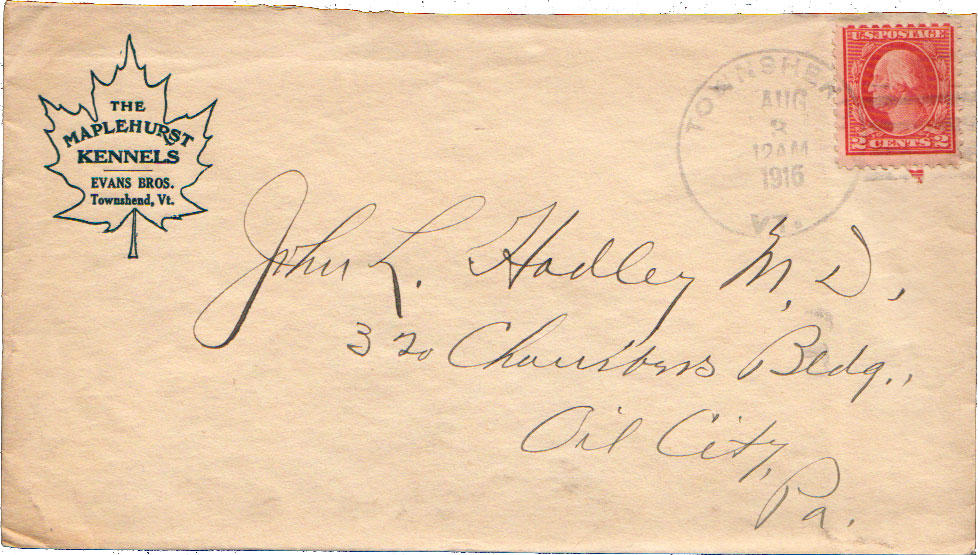 THE
MAPLEHURST
KENNELS
EVANS BROS.
Townshend, Vt.
TOWNSHEN
AUG
12AM
1916
VT.
U.S. POSTAGE
2 CENTS 2
John L. Hadley M.D.,
320 Chambers Bldg.,
Oil City,
Pa.